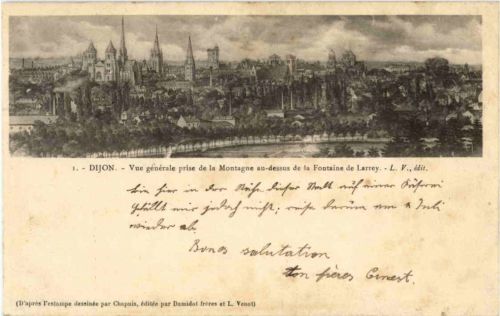 1. - DIJON. - Vue générale prise de la Montagne au-dessus de la Fontaine de Larrey. - L. V., édit.
bin hier in der Nähe dieser Stadt auf einer Käserei
gfällt mir jedoch nicht; reise darum am Juli
wieder ab.
Bonds salutation
ton frères Ernest.
(D'après l'estampe dessinée par Chapuis, éditée par Damidot frères et L. Venot)